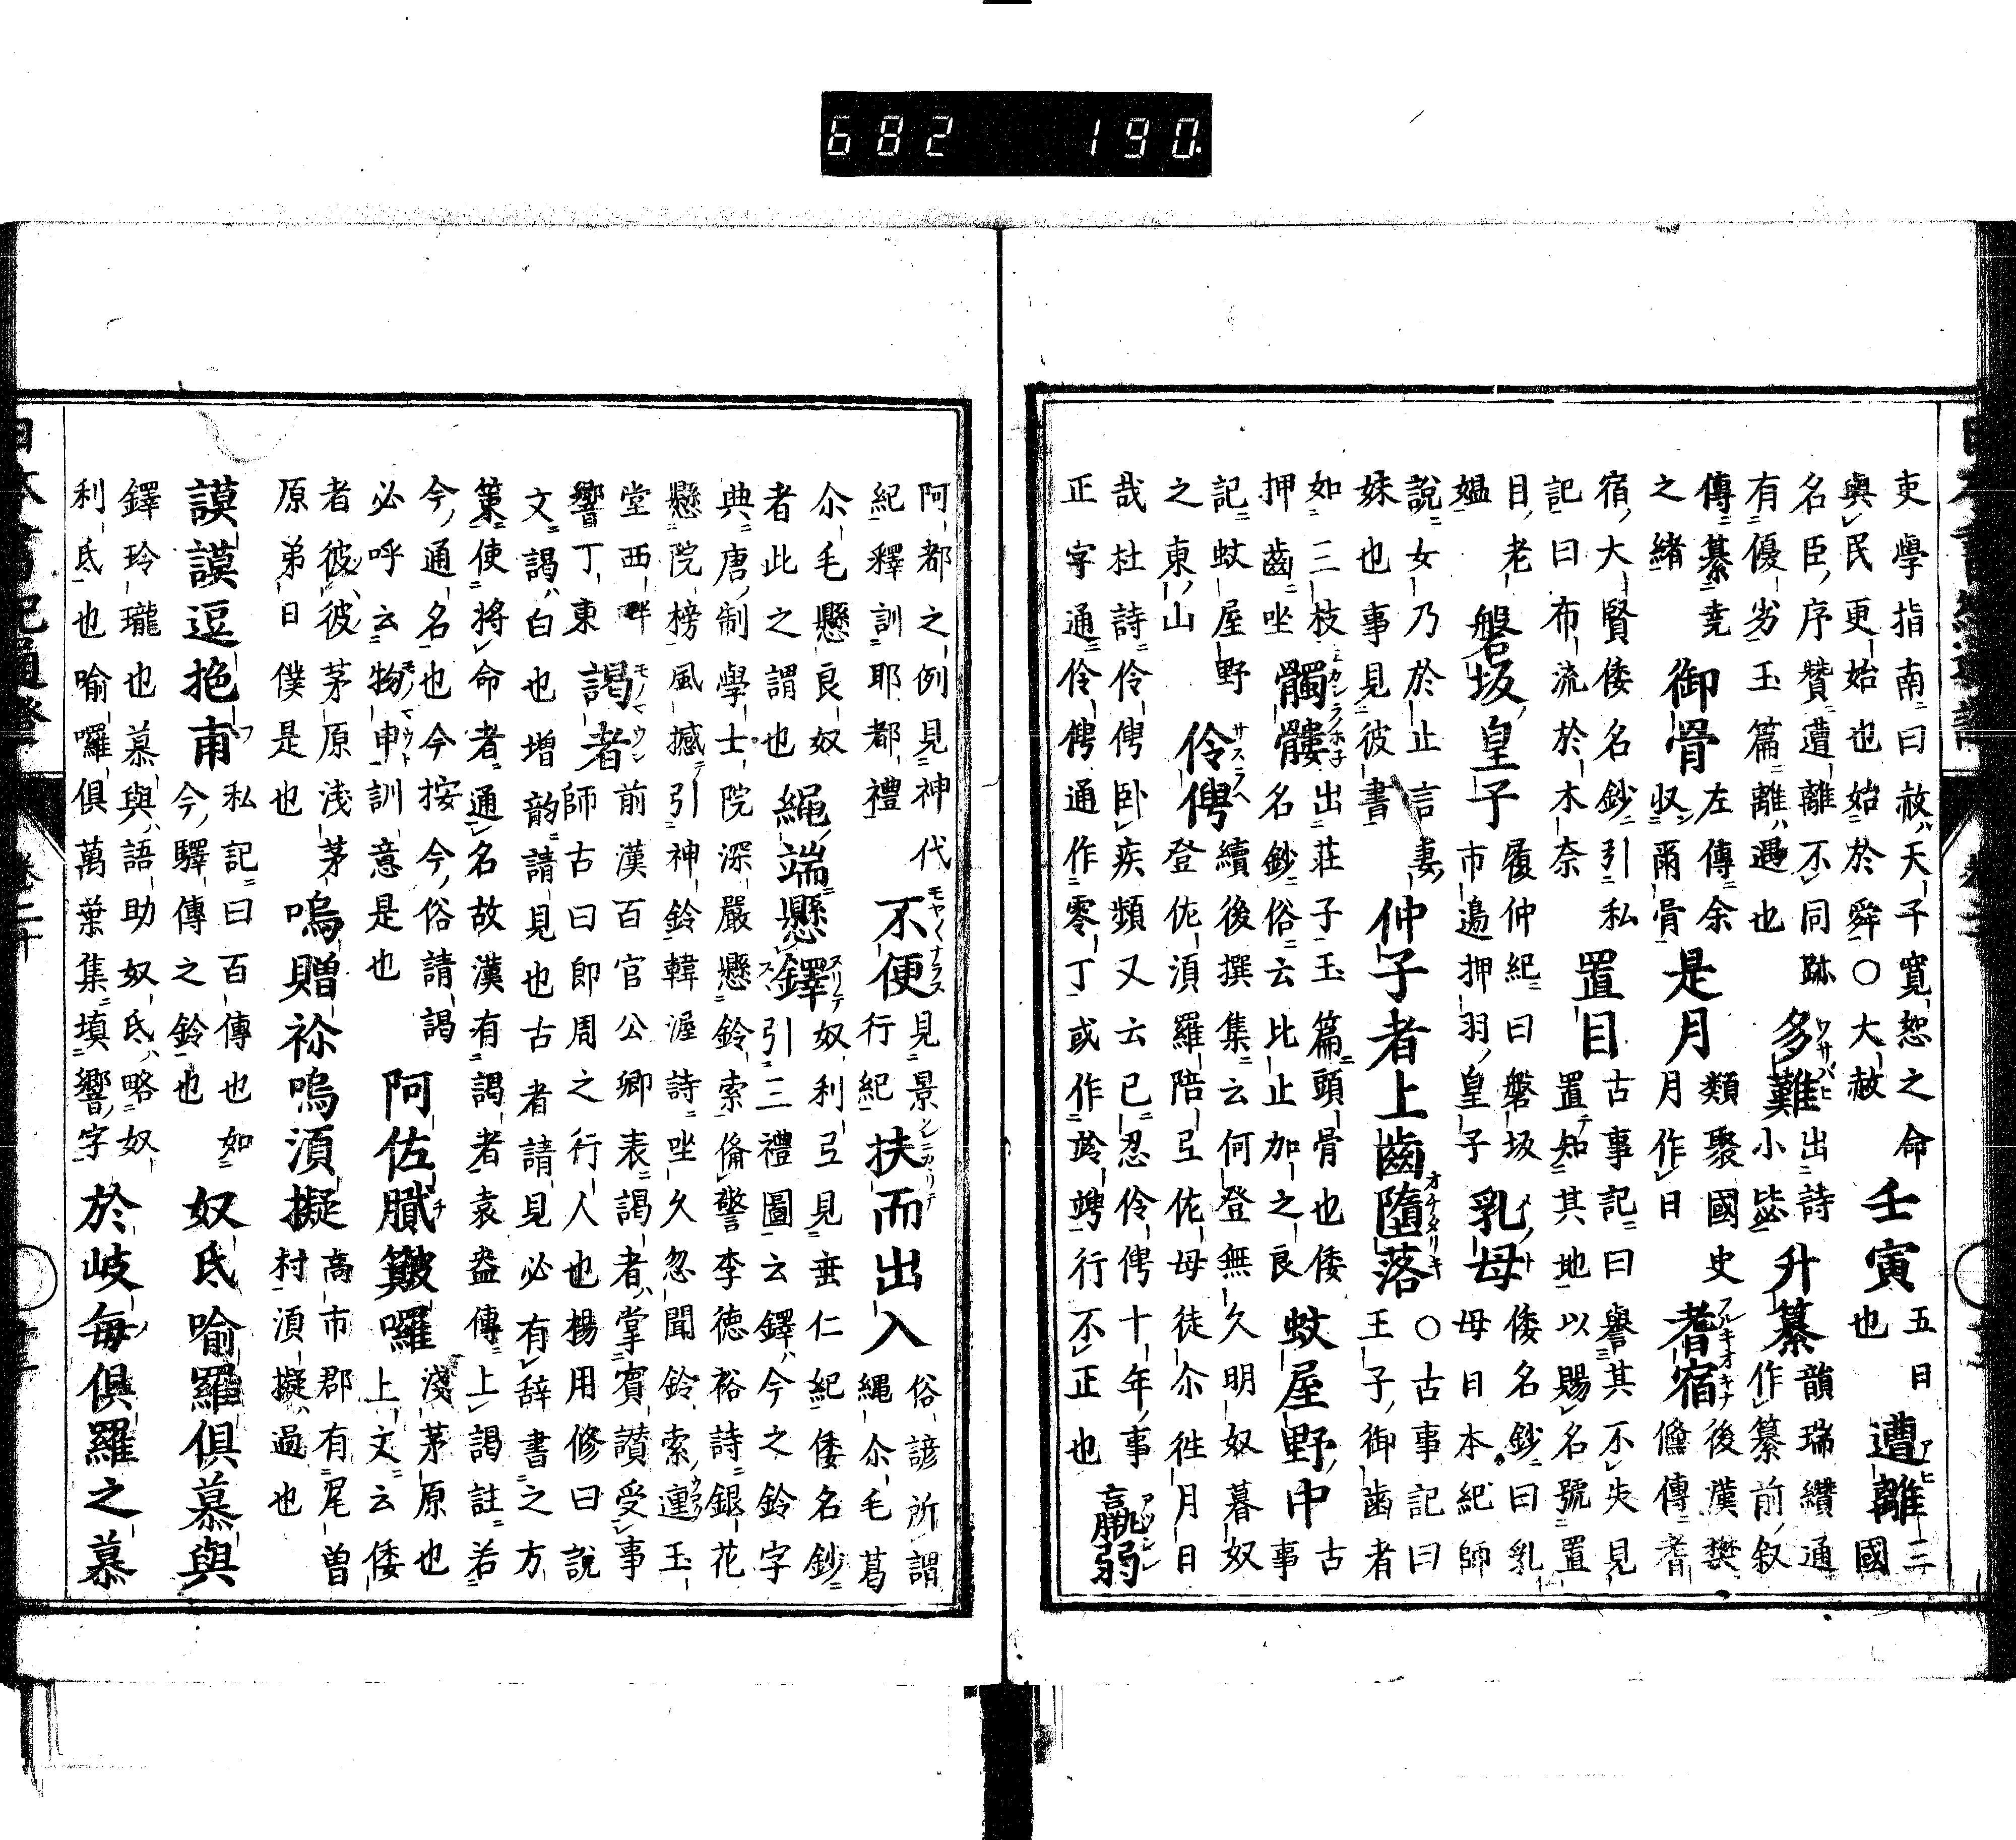 吏學指南曰赦ハ天子寬恕之命
與民更始也始於舜○大赦
壬寅
五日
也
遭離
二
國
名臣序贊遭離不同跡
有優劣玉篇離ハ遇也
多難
出詩
小毖
升纂
韻瑞纘通
作纂前叙
傳纂堯
之緒
御骨
左傳余
収爾骨
是月
類聚國史
月作日
耆宿
後漢樊
儵傳耆
宿大賢倭名鈔引私
記曰布流於木奈
置目
古事記曰譽其不失見
置知其地以賜名號置
目老
媼
磐坂皇子
履仲紀曰磐坂
市邊押羽皇子
乳母
倭名鈔曰乳
母日本紀師
說女乃於止言妻
妹也事見彼書
仲子者上齒墮落
○古事記曰
王子御齒者
如三枝
押齒坐
髑髏
出莊子玉篇頭骨也倭
名鈔俗云比止加之良
蚊屋野中
古
事
記蚊屋野
之東山
伶俜
續後撰集云何登無久明奴暮奴
登佐湏羅陪弖佐母徒尓徃月日
哉杜詩伶俜卧疾頻又云已忍伶俜十年事
正字通伶俜通作零丁或作竛竮行不正也
羸弱
阿都之例見神代
紀釋訓耶都禮
不便
見景
行紀
扶而出入
俗諺所謂
繩尓毛葛
尓毛懸良奴
者此之謂也
繩端懸鐸
奴利弖見垂仁紀倭名鈔
引三禮圖云鐸ハ今之鈴字
典唐制學士院深嚴懸鈴索備警李德裕詩銀花
懸院榜風撼引神鈴韓渥詩坐久忽聞鈴索運玉
堂西畔
響丁東
謁者
前漢百官公卿表謁者ハ掌賓讃受事
師古曰即周之行人也楊用修曰說
文謁ハ白也增韵請見也古者請見必有辞書之方
策使將命者通名故漢有謁者袁盎傳上謁註若
今通名也今按今俗請謁
必呼云物申訓意是也
阿佐膩簸囉
淺茅原也
上文云倭
者彼彼茅原淺茅
原弟日僕是也
嗚贈祢嗚湏擬
高市郡有尾曽
村湏擬ハ過也
謨謨逗拖甫
私記曰百傳也如
今驛傳之鈴也
奴氐喻羅倶慕與
鐸玲瓏也慕與ハ語助奴氐ハ略奴
利氐也喻囉倶萬葉集塡響字
於岐毎倶羅之慕